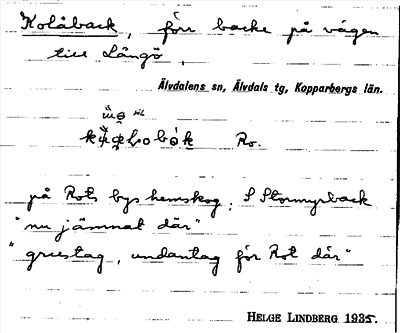 Kolåback, förr backe på vägen
till Långö,
Älvdalens sn, Älvdals tg, Kopparbergs län.
Ro.
på Rots bys hemskog; S Stormyrback
"nu jämnat där"
"grustag, undantag för Rot där"
HELGE LINDBERG 1935.